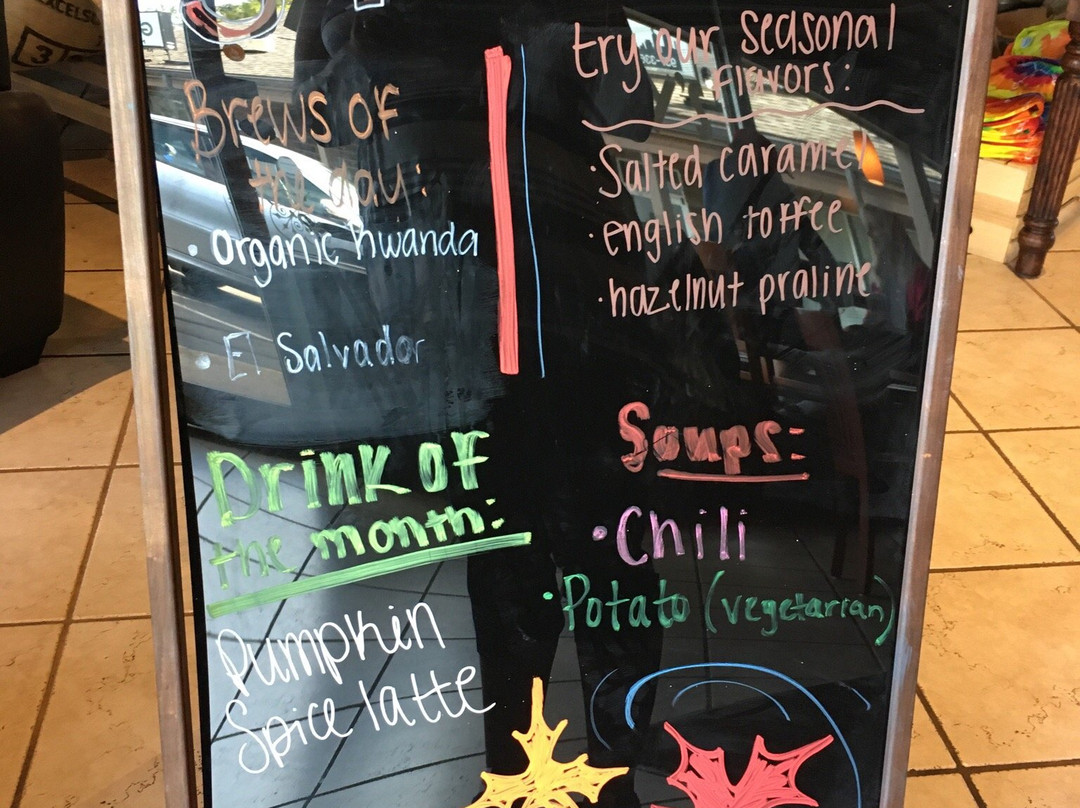 Brews of
the day:
· organic rwanda
· El Salvador
Drink of
the month:
Pumpkin
Spice latte
try our seasonal
flavors:
· Salted caramel
· english toffee
· hazelnut praline
Soups:
· Chili
· Potato (vegetarian)
EXCELS
3